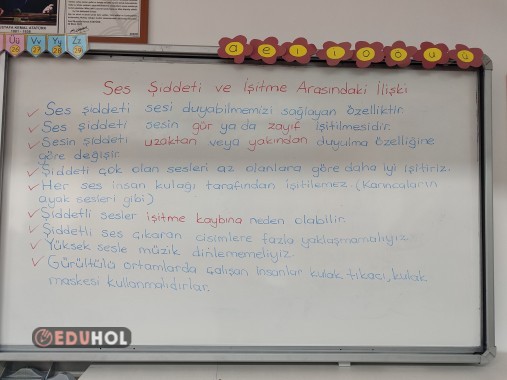 MUSTAFA KEMAL ATATÜRK
1881 - 1938
Üü Vv Yy Zz
26 27 28 29
a e ı i o ö u ü
Ses Şiddeti ve İşitme Arasındaki İlişki
✓ Ses şiddeti sesi duyabilmemizi sağlayan özelliktir.
✓ Ses şiddeti sesin gür ya da zayıf işitilmesidir.
✓ Sesin şiddeti uzaktan veya yakından duyulma özelliğine
göre değişir.
✓ Şiddeti çok olan sesleri az olanlara göre daha iyi işitiriz.
✓ Her ses insan kulağı tarafından işitilemez. (Karıncaların
ayak sesleri gibi)
✓ Şiddetli sesler işitme kaybına neden olabilir.
✓ Şiddetli ses çıkaran cisimlere fazla yaklaşmamalıyız.
✓ Yüksek sesle müzik dinlememeliyiz.
✓ Gürültülü ortamlarda çalışan insanlar kulak tıkacı, kulak
maskesi kullanmalıdırlar.
EDUHOL